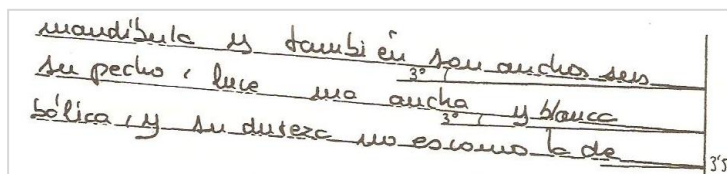 mandíbula y también son anchos sus
su pecho, luce una ancha y blanca
3º
bólica, y su dureza no es como la de
3º
3'5